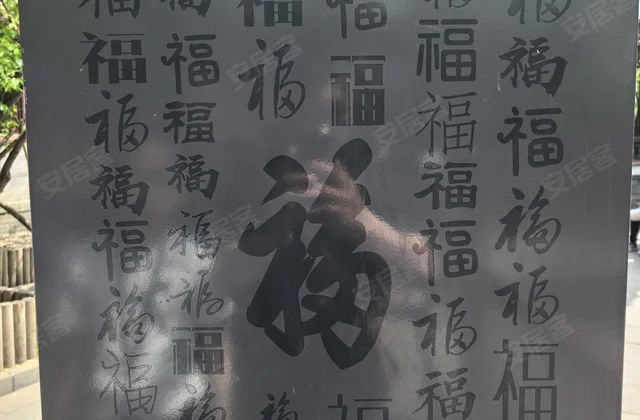 福福福福福福福
福福福福福福福福
福福福
福
福福福
福福福福福福福
福福福福福福
安居客
安居客
安居客
安居客
安居客
安居客
安居客
安居客
安居客